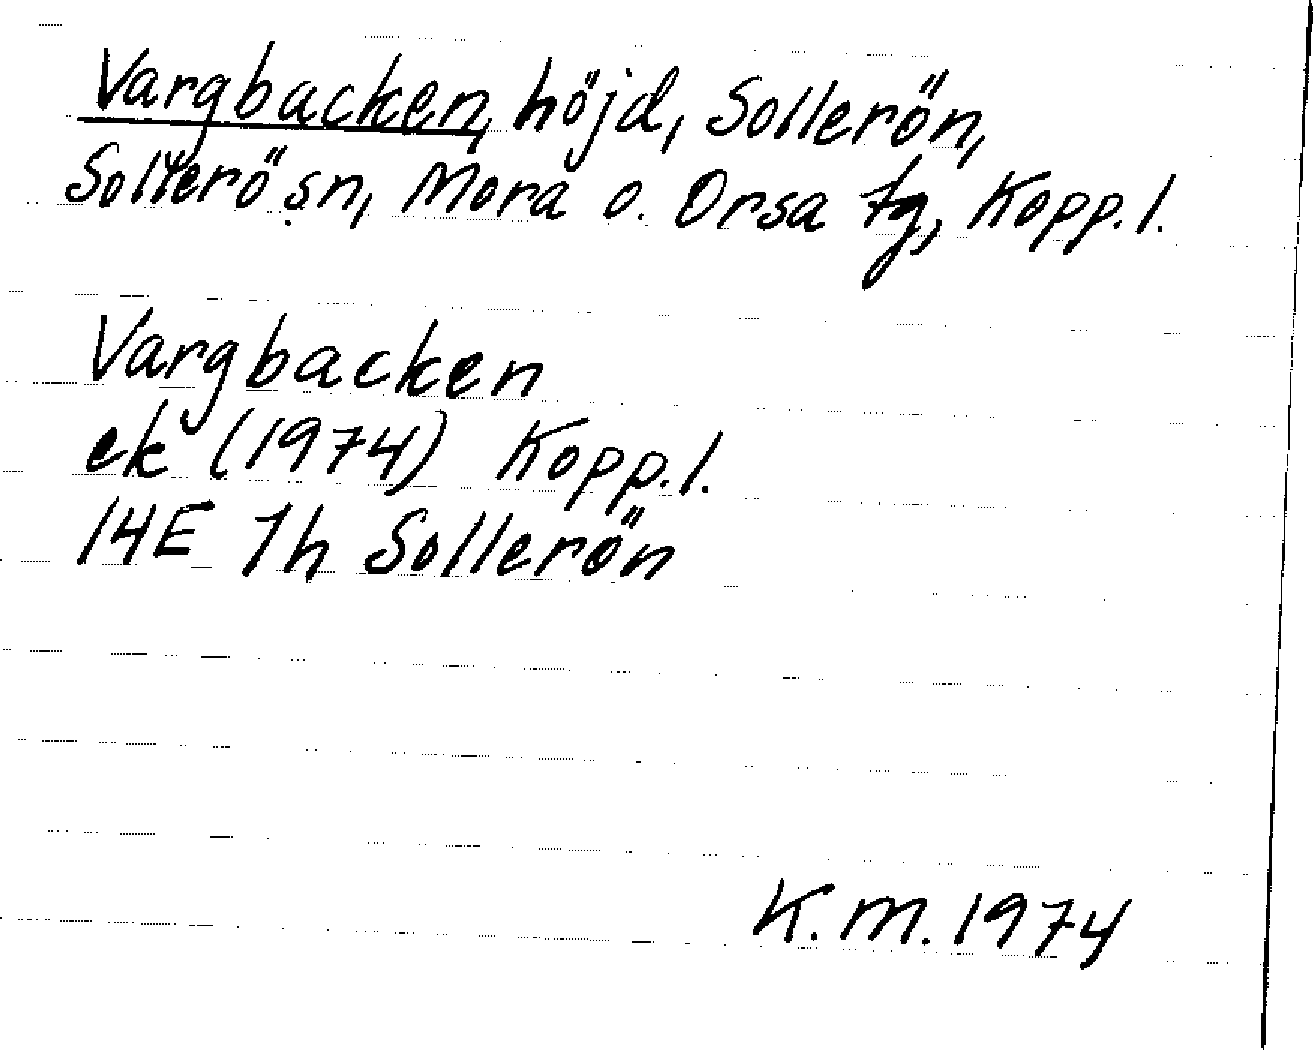 Vargbacken, höjd, Sollerön,
Sollerö sn, Mora o. Orsa tg, Kopp. l.
Vargbacken
ek (1974) Kopp. l.
14E 1h Sollerön
K. M. 1974